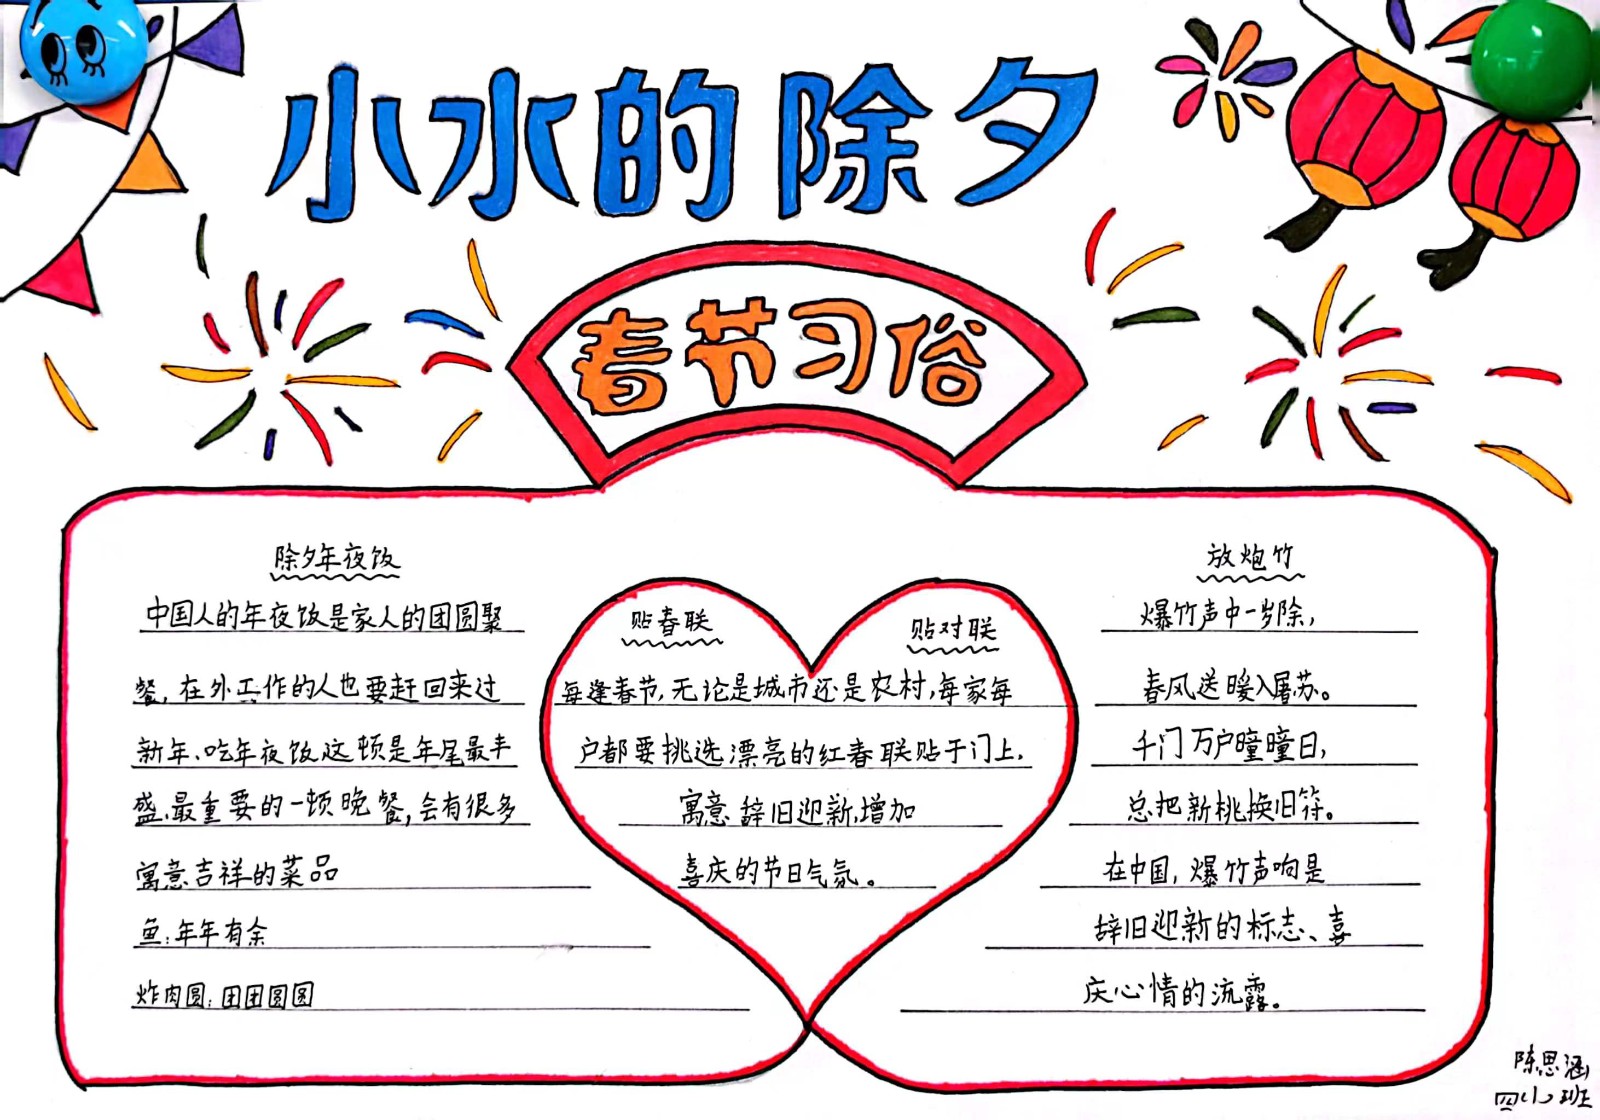 小水的除夕
春节习俗
除夕年夜饭
中国人的年夜饭是家人的团圆聚
餐,在外工作的人也要赶回来过
新年、吃年夜饭.这顿是年尾最丰
盛.最重要的一顿晚餐,会有很多
寓意吉祥的菜品
鱼:年年有余
炸肉圆:团团圆圆
贴春联
贴对联
每逢春节,无论是城市还是农村,每家每
户都要挑选漂亮的红春联贴于门上.
寓意辞旧迎新,增加
喜庆的节日气氛。
放炮竹
爆竹声中一岁除,
春风送暖入屠苏。
千门万户曈曈日,
总把新桃换旧符。
在中国,爆竹声响是
辞旧迎新的标志、喜
庆心情的流露。
陈思涵